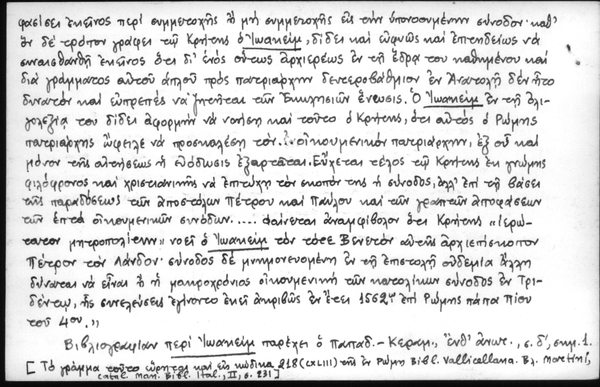 φασίσει ἐκεῖνος περὶ συμμετοχῆς ἢ μὴ συμμετοχῆς εἰς τὴν ὑπονοουμένην σύνοδον· καθ'
ὃν δὲ τρόπον γράφει τῷ Κρήτης ὁ Ἰωακείμ, δίδει καὶ εὐφυῶς καὶ ἐπιτηδείως νὰ
συναισθανθῇ ἐκεῖνος ὅτι δι' ἑνὸς οὕτως ἀρχιερέως ἐν τῇ ἕδρᾳ του καθημένου καὶ
διὰ γράμματος αὐτοῦ ἁπλοῦ πρὸς πατριάρχην δευτεροβάθμιον ἐν Ἀνατολῇ δὲν ἦτο
δυνατὸν καὶ εὐπρεπὲς νὰ ζητῆται τῶν Ἐκκλησιῶν ἕνωσις. Ὁ Ἰωακεὶμ ἐν τῇ ὀλι-
γολεξίᾳ του δίδει ἀφορμὴν νὰ νοήσῃ καὶ τοῦτο ὁ Κρήτης, ὅτι αὐτὸς ὁ Ῥώμης
πατριάρχης ὤφειλε νὰ προσκαλέσῃ τὸν... οἰκουμενικὸν πατριάρχην, ἐξ οὗ καὶ
μόνον τῆς αἰτήσεως ἡ εὐόδωσις ἐξαρτᾶται. Εὔχεται τέλος τῷ Κρήτης ἐκ γνώμης
φιλόφρονος καὶ χριστιανικῆς νὰ ἐπιτύχῃ τὸν σκοπόν της ἡ σύνοδος, ἀλλ' ἐπὶ τῇ βάσει
τῆς παραδόσεως τῶν ἀποστόλων Πέτρου καὶ Παύλου καὶ τῶν γραπτῶν ἀποφάσεων
τῶν ἑπτὰ οἰκουμενικῶν συνόδων..... Φαίνεται ἀναμφίβολον ὅτι Κρήτης «ἱερώ-
τατον μητροπολίτην» νοεῖ ὁ Ἰωακεὶμ τὸν τότε Βενετὸν αὐτῆς ἀρχιεπίσκοπον
Πέτρον τὸν Λάνδον· σύνοδος δὲ μνημονευομένη ἐν τῇ ἐπιστολῇ οὐδεμία ἄλλη
δύναται νὰ εἶναι ἢ ἡ μακροχρόνιος οἰκουμενικὴ τῶν κατολίκων σύνοδος ἐν Τρι-
δέντῳ, ἧς συνελεύσεις ἐγίνοντο ἐκεῖ ἀκριβῶς ἐν ἔτει 1562ῳ ἐπὶ Ῥώμης πάπα Πίου
τοῦ 4ου.»
Βιβλιογραφίαν περὶ Ἰωακεὶμ παρέχει ὁ Παπαδ.-Κεραμ., ἔνθ' ἀνωτ., σ. δ', σημ. 1.
[Τὸ γράμμα τοῦτο εὕρηται καὶ εἰς κώδικα 218 (CXLIII) τῆς ἐν Ῥώμῃ Βιβλ. Vallicellana. Βλ. Martini,
Catal. Man. Bibl. Ital., II, σ. 231]